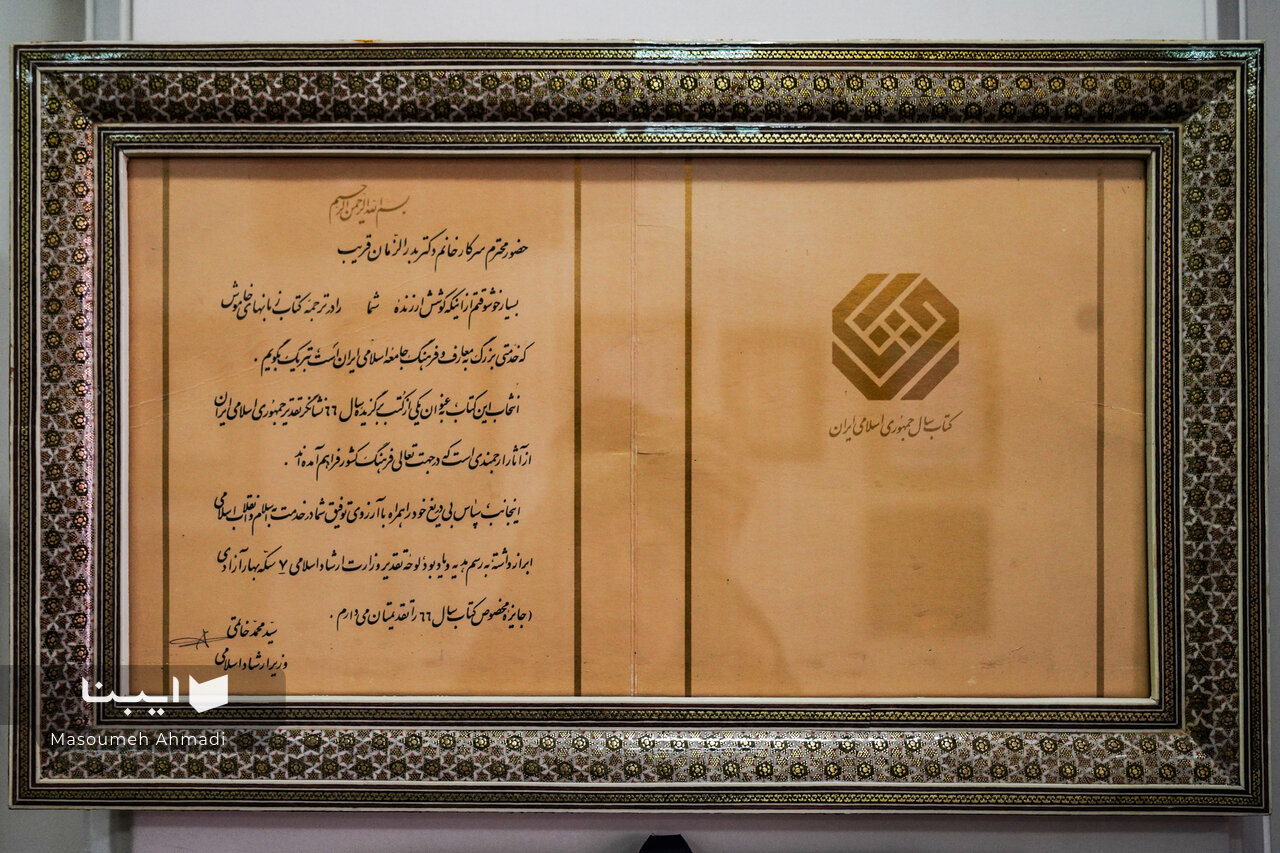 بسم الله الرحمن الرحیم
حضور محترم سرکار خانم دکتر بدرالزمان قریب
بسیار خوشوقتم از اینکه کوشش ارزنده شما را در ترجمه کتاب زبانهای خاموش
که خدمتی بزرگ به معارف و فرهنگ جامعه اسلامی ایران است تبریک بگویم.
انتخاب این کتاب بعنوان یکی از کتب برگزیده سال ۶۶ نشانگر تقدیر جمهوری اسلامی ایران
از آثار ارجمندی است که در جهت تعالی فرهنگ کشور فراهم آمده‌اند.
اینجانب سپاس بی دریغ خود را همراه با آرزوی توفیق شما در خدمت به اسلام و انقلاب اسلامی
ابراز داشته به رسم هدیه و یادبود لوحه تقدیر وزارت ارشاد اسلامی ۷ سکه بهار آزادی
(جایزه مخصوص کتاب سال ۶۶ را تقدیمتان می‌دارم.
سید محمد خاتمی
وزیر ارشاد اسلامی
کتاب سال جمهوری اسلامی ایران
ایبنا
Masoumeh Ahmadi